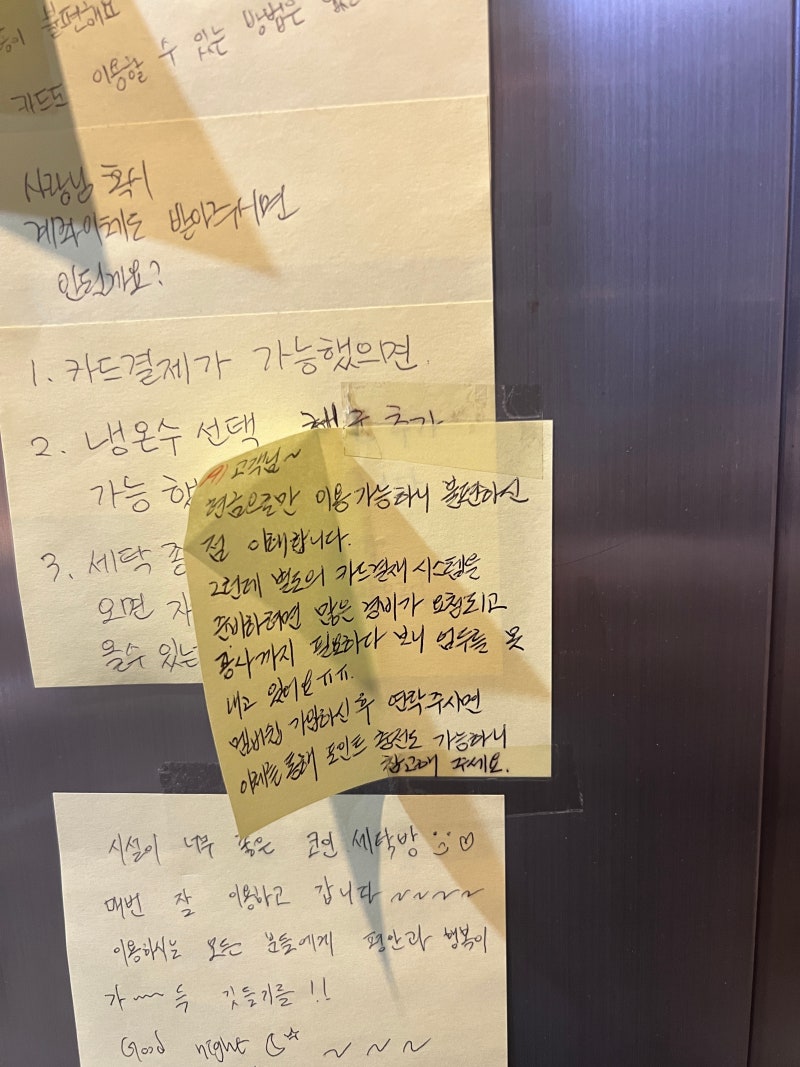 불편해요
카드도 이용할 수 있는 방법은
사장님 혹시
계좌이체도 받아주시면
안될까요?
1. 카드결제가 가능했으면
2. 냉온수 선택 헹굼 추가
가능 했
3. 세탁 종
오면 자
을수 있는
고객님~
현금으로만 이용가능하니 불편하신
점 이해합니다.
그런데 별도의 카드결재 시스템을
준비하려면 많은 경비가 요청되고
공사까지 필요하다 보니 엄두를 못
내고 있어요ㅠㅠ.
멤버쉽 가입하신 후 연락주시면
이체를 통해 포인트 충전도 가능하니
참고해 주세요.
시설이 너무 좋은 코인 세탁방
매번 잘 이용하고 갑니다~~~~
이용하시는 모든 분들에게 평안과 행복이
가~~득 깃들기를!!
Good night ~~~